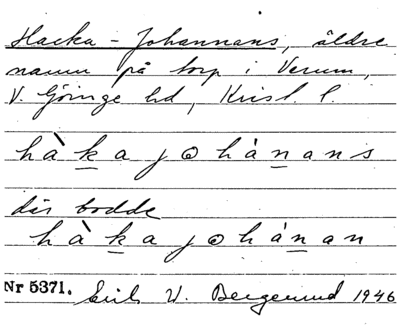 Hacka-Johannans, äldre
namn på torp i Verum,
V. Göinge hd, Krist. l.
hàkajohànans
där bodde
hàkajohànan
Nr 5371. Erik V. Bergerund 1946